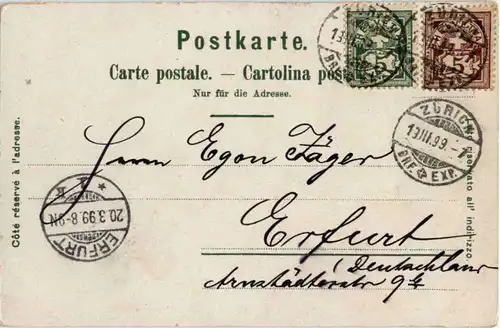 Postkarte.
Carte postale. — Cartolina pos
Nur für die Adresse.
Côté réservé à l'adresse.
riservato all' indirizzo.
ZÜRICH
13 III 99
BRF. EXP.
ZÜRICH
19 III 99 - 7
BRF. EXP.
5
5
Herrn Egon Jäger
Erfurt
(Deutschland
Arnstädterstr 9
ERFURT
20.3.99.8-9N
* a *